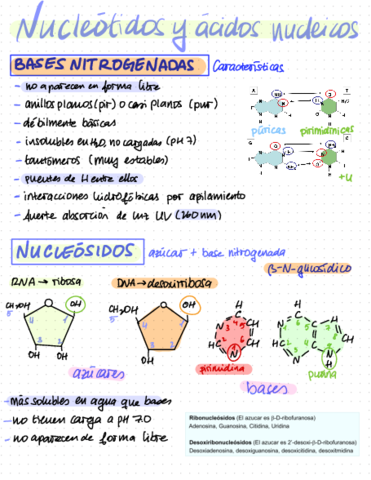 Nucleótidos y ácidos nucleicos
BASES NITROGENADAS Características
- no aparecen en forma libre
- anillos planos (pir) o casi planos (pur)
- débilmente básicas
- insolubles en H₂O, no cargadas (pH 7)
- tautómeros (muy estables)
- puentes de H entre ellos
- interacciones hidrofóbicas por apilamiento
- fuerte absorción de luz UV (260 nm)
púricas pirimidínicas
+U
NUCLEÓSIDOS azúcar + base nitrogenada
β-N-glucosídico
RNA → ribosa DNA → desoxirribosa
CH₂OH O OH CH₂OH O OH
OH OH OH
azúcares
pirimidina
purina
bases
- más solubles en agua que bases
- no tienen carga a pH 7.0
- no aparecen de forma libre
Ribonucleósidos (El azucar es β-D-ribofuranosa)
Adenosina, Guanosina, Citidina, Uridina
Desoxiribonucleósidos (El azucar es 2'-desoxi-β-D-ribofuranosa)
Desoxiadenosina, desoxiguanosina, desoxicitidina, desoxitimidina